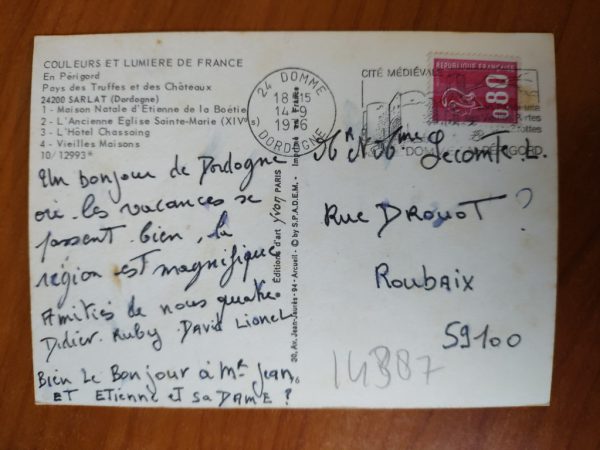 COULEURS ET LUMIERE DE FRANCE
En Périgord
Pays des Truffes et des Châteaux
24200 SARLAT (Dordogne)
1 - Maison Natale d'Etienne de la Boëtie
2 - L'Ancienne Eglise Sainte-Marie (XIVe s)
3 - L'Hôtel Chassaing
4 - Vieilles Maisons
10/12993*
Un bonjour de Dordogne
où les vacances se
passent bien, la
région est magnifique
Amitiés de nous quatre.
Didier. Ruby. David Lionel
Bien Le Bonjour à Mr Jean,
ET ETienne eT sa DAME ?
Editions d'art yvon PARIS
30, Av. Jean-Jaurès - 94 - Arcueil - © by S.P.A.D.E.M. - Imprimé en France
24 DOMME
18H15
1976
DORDOGNE
CITÉ MÉDIÉVALE
PÉRIGORD
REPUBLIQUE FRANÇAISE
0,80
Mr Mme Lecomte L.
Rue DROUOT ?
Roubaix
59100
14387